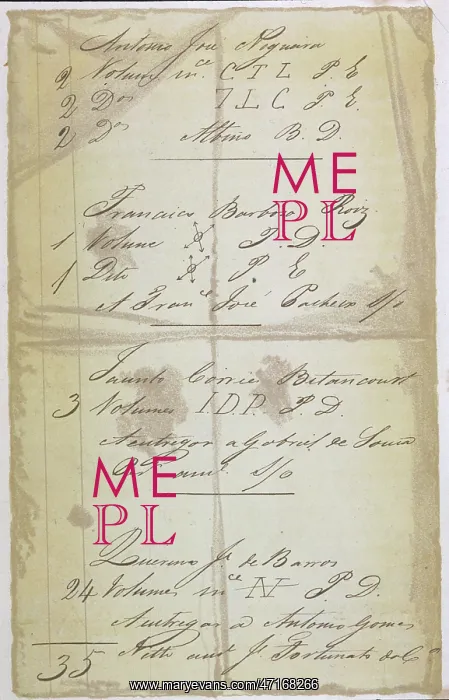 Antonio José Nogueira
2 Volum. m.ce C I L P. E
2 D.os 7 L C P E.
2 D.os Albino B. D.
Francisco Barbosa Roiz
1 Volume P. D.
1 Dito P. E
A Fran.co José Pacheco S/o
Jacinto Correia Betancourt
3 Volumes I.D.P. P. D.
Aentregar a Gabriel de Souza
S/o
Querino J.e de Barros
24 Volumes m.ce N P. D.
Aentregar a Antonio Gomes
Netto J.e Fortunato da C.a
35
ME
PL
ME
PL
www.maryevans.com/47168266